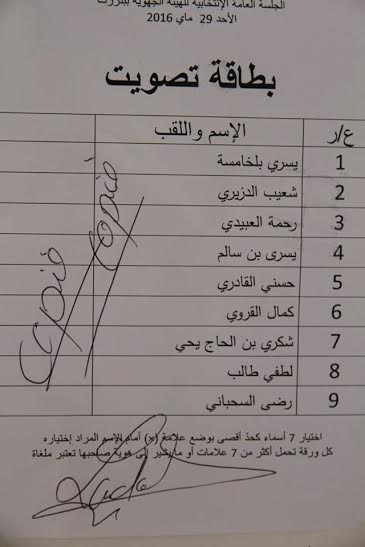 الجلسة العامة الإنتخابية للهيئة الجهوية ببنزرت
الأحد 29 ماي 2016
بطاقة تصويت
ع/ر الإسم واللقب
1 يسري بلخامسة
2 شعيب الدزيري
3 رحمة العبيدي
4 يسرى بن سالم
5 حسني القادري
6 كمال القروي
7 شكري بن الحاج يحي
8 لطفي طالب
9 رضى السحباني
اختيار 7 أسماء كحدّ أقصى بوضع علامة (×) أمام الإسم المراد إختياره
كل ورقة تحمل أكثر من 7 علامات أو ما يشير إلى هوية صاحبها تعتبر ملغاة